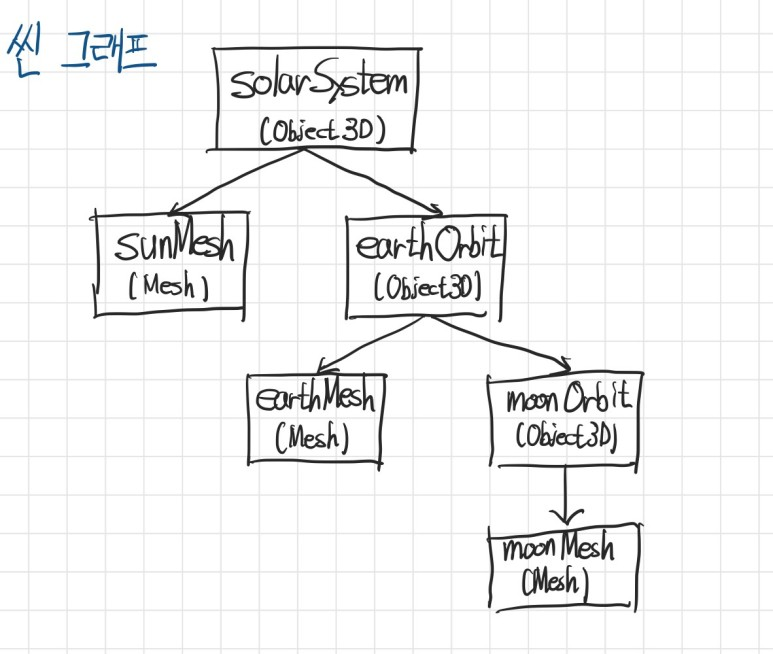 씬 그래프
solarSystem
(Object3D)
sunMesh
(Mesh)
earthOrbit
(Object3D)
earthMesh
(Mesh)
moonOrbit
(Object3D)
moonMesh
(Mesh)